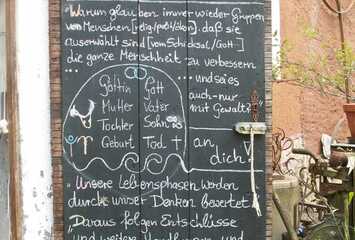 "Warum glauben immer wieder Gruppen
von Menschen [relig./polit./okon.], daß sie
auserwählt sind [vom Schicksal/Gott]
die ganze Menschheit zu verbessern
... und sei es
auch - nur
mit Gewalt?
Göttin Gott
Mutter Vater
Tochter Sohn
Geburt Tod †
an
dich!
"Unsere Lebensphasen werden
durch unser Denken bewertet."
"Daraus folgen Entschlüsse
und weitere